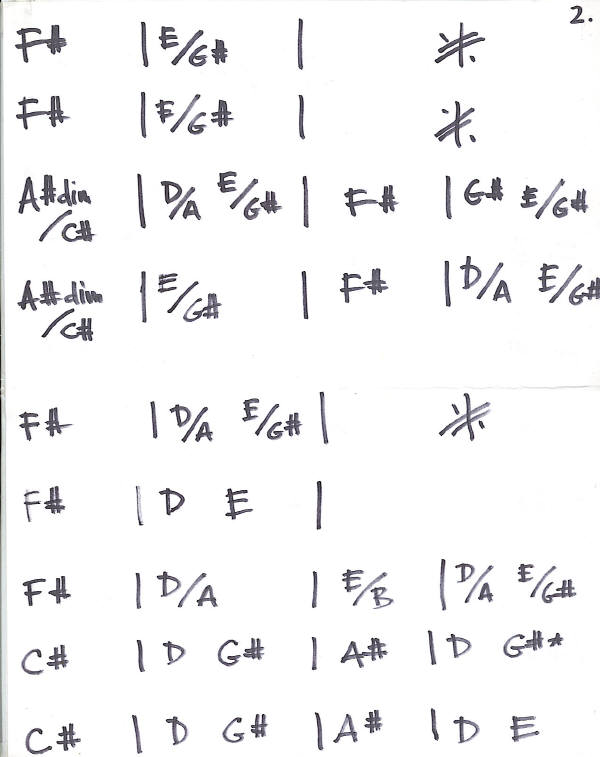 2.
F# | E/G# | 𝄎
F# | E/G# | 𝄎
A#dim/C# | D/A E/G# | F# | G# E/G#
A#dim/C# | E/G# | F# | D/A E/G#
F# | D/A E/G# | 𝄎
F# | D E |
F# | D/A | E/B | D/A E/G#
C# | D G# | A# | D G#*
C# | D G# | A# | D E